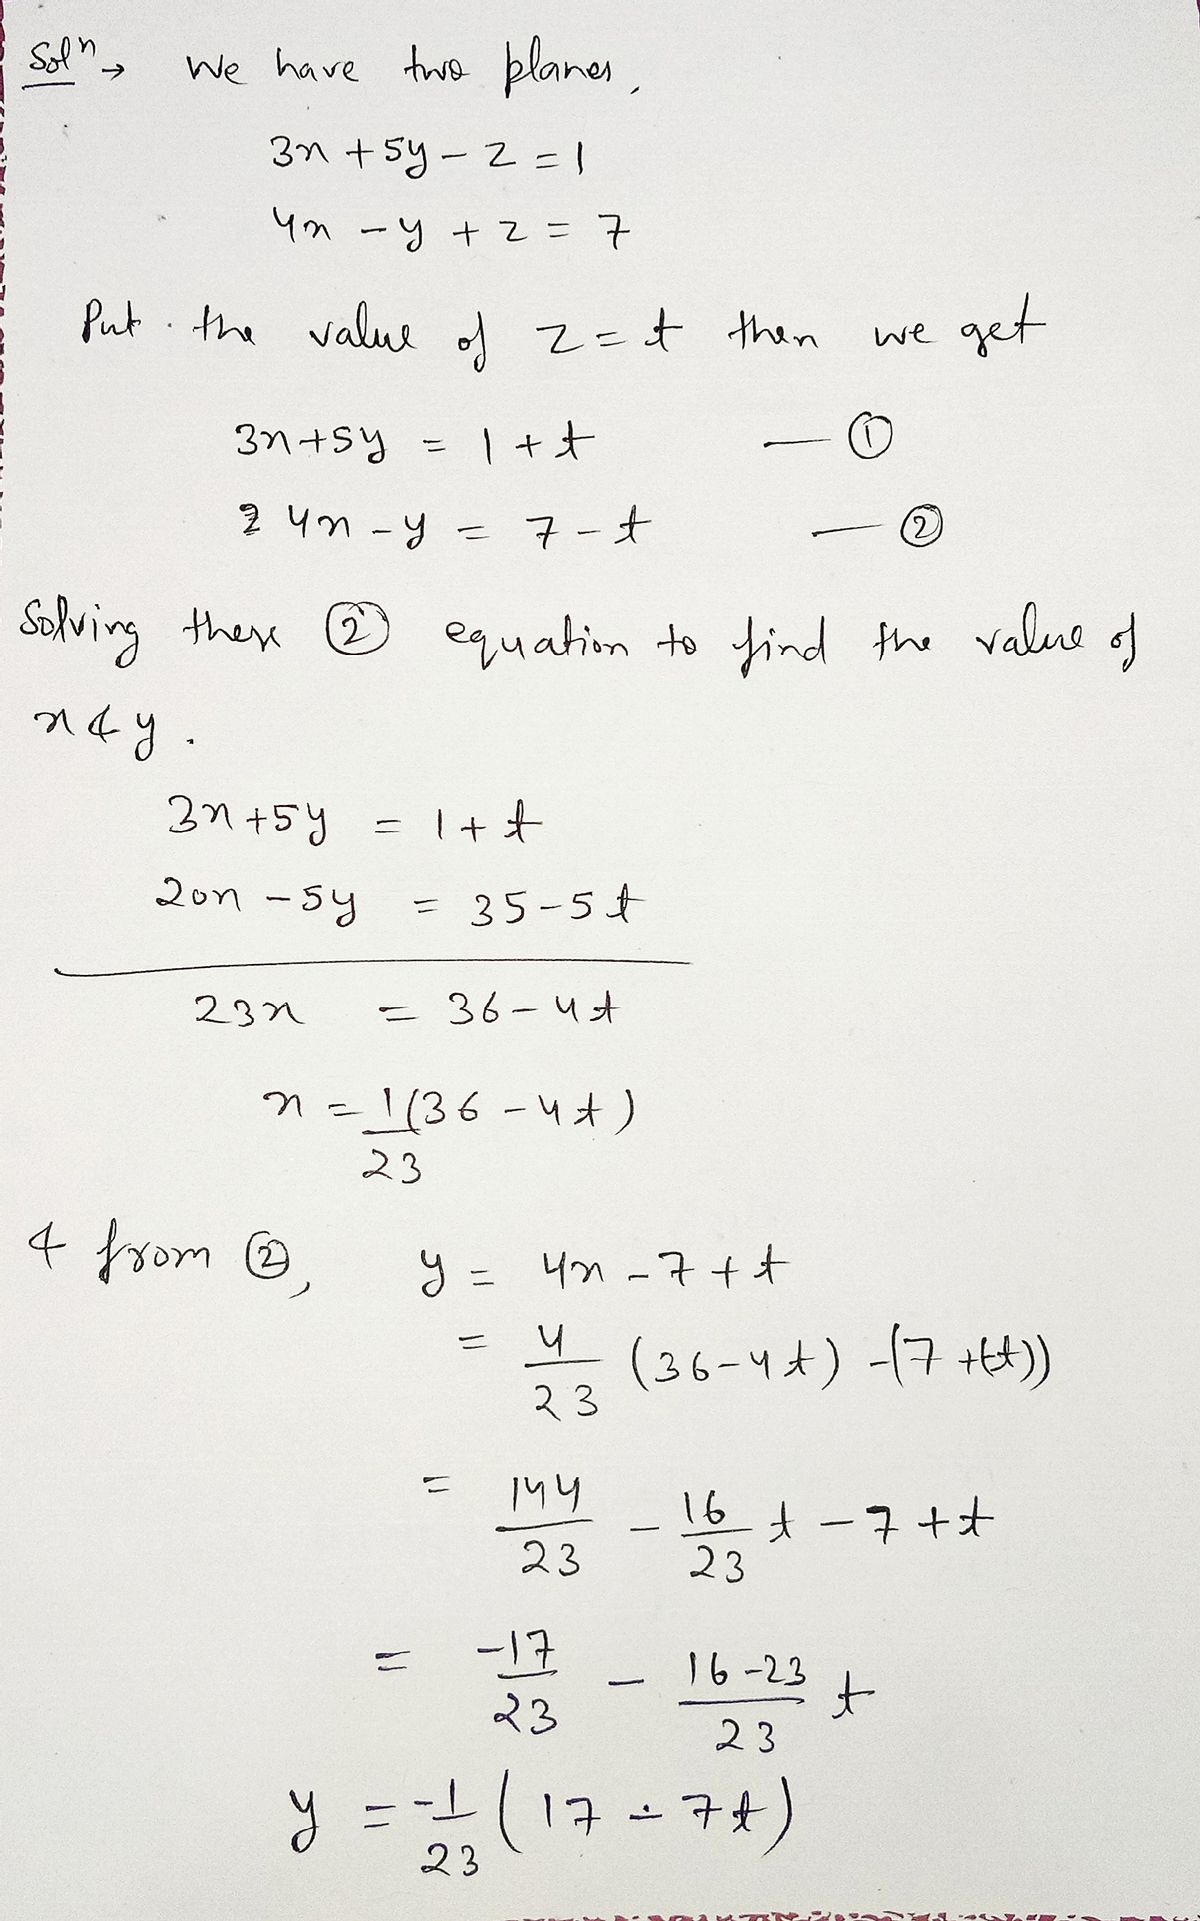 Solⁿ → We have two planes,
3x + 5y - z = 1
4x - y + z = 7
Put the value of z = t then we get
3x+5y = 1 + t — ①
& 4x - y = 7 - t — ②
Solving these ② equation to find the value of
x & y.
3x + 5y = 1 + t
20x - 5y = 35 - 5t
23x = 36 - 4t
x = 1/23 (36 - 4t)
& from ②, y = 4x - 7 + t
= 4/23 (36 - 4t) - (7 + (-t))
= 144/23 - 16/23 t - 7 + t
= -17/23 - 16-23/23 t
y = -1/23 (17 - 7t)